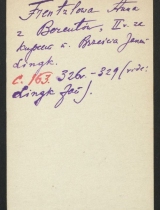 Frentzlowa Anna
z Borentów, II v. za
kupcem k. Braciia Janem
Lingk.
C. 163. 326v - 329 (vide:
Lingk Jan).